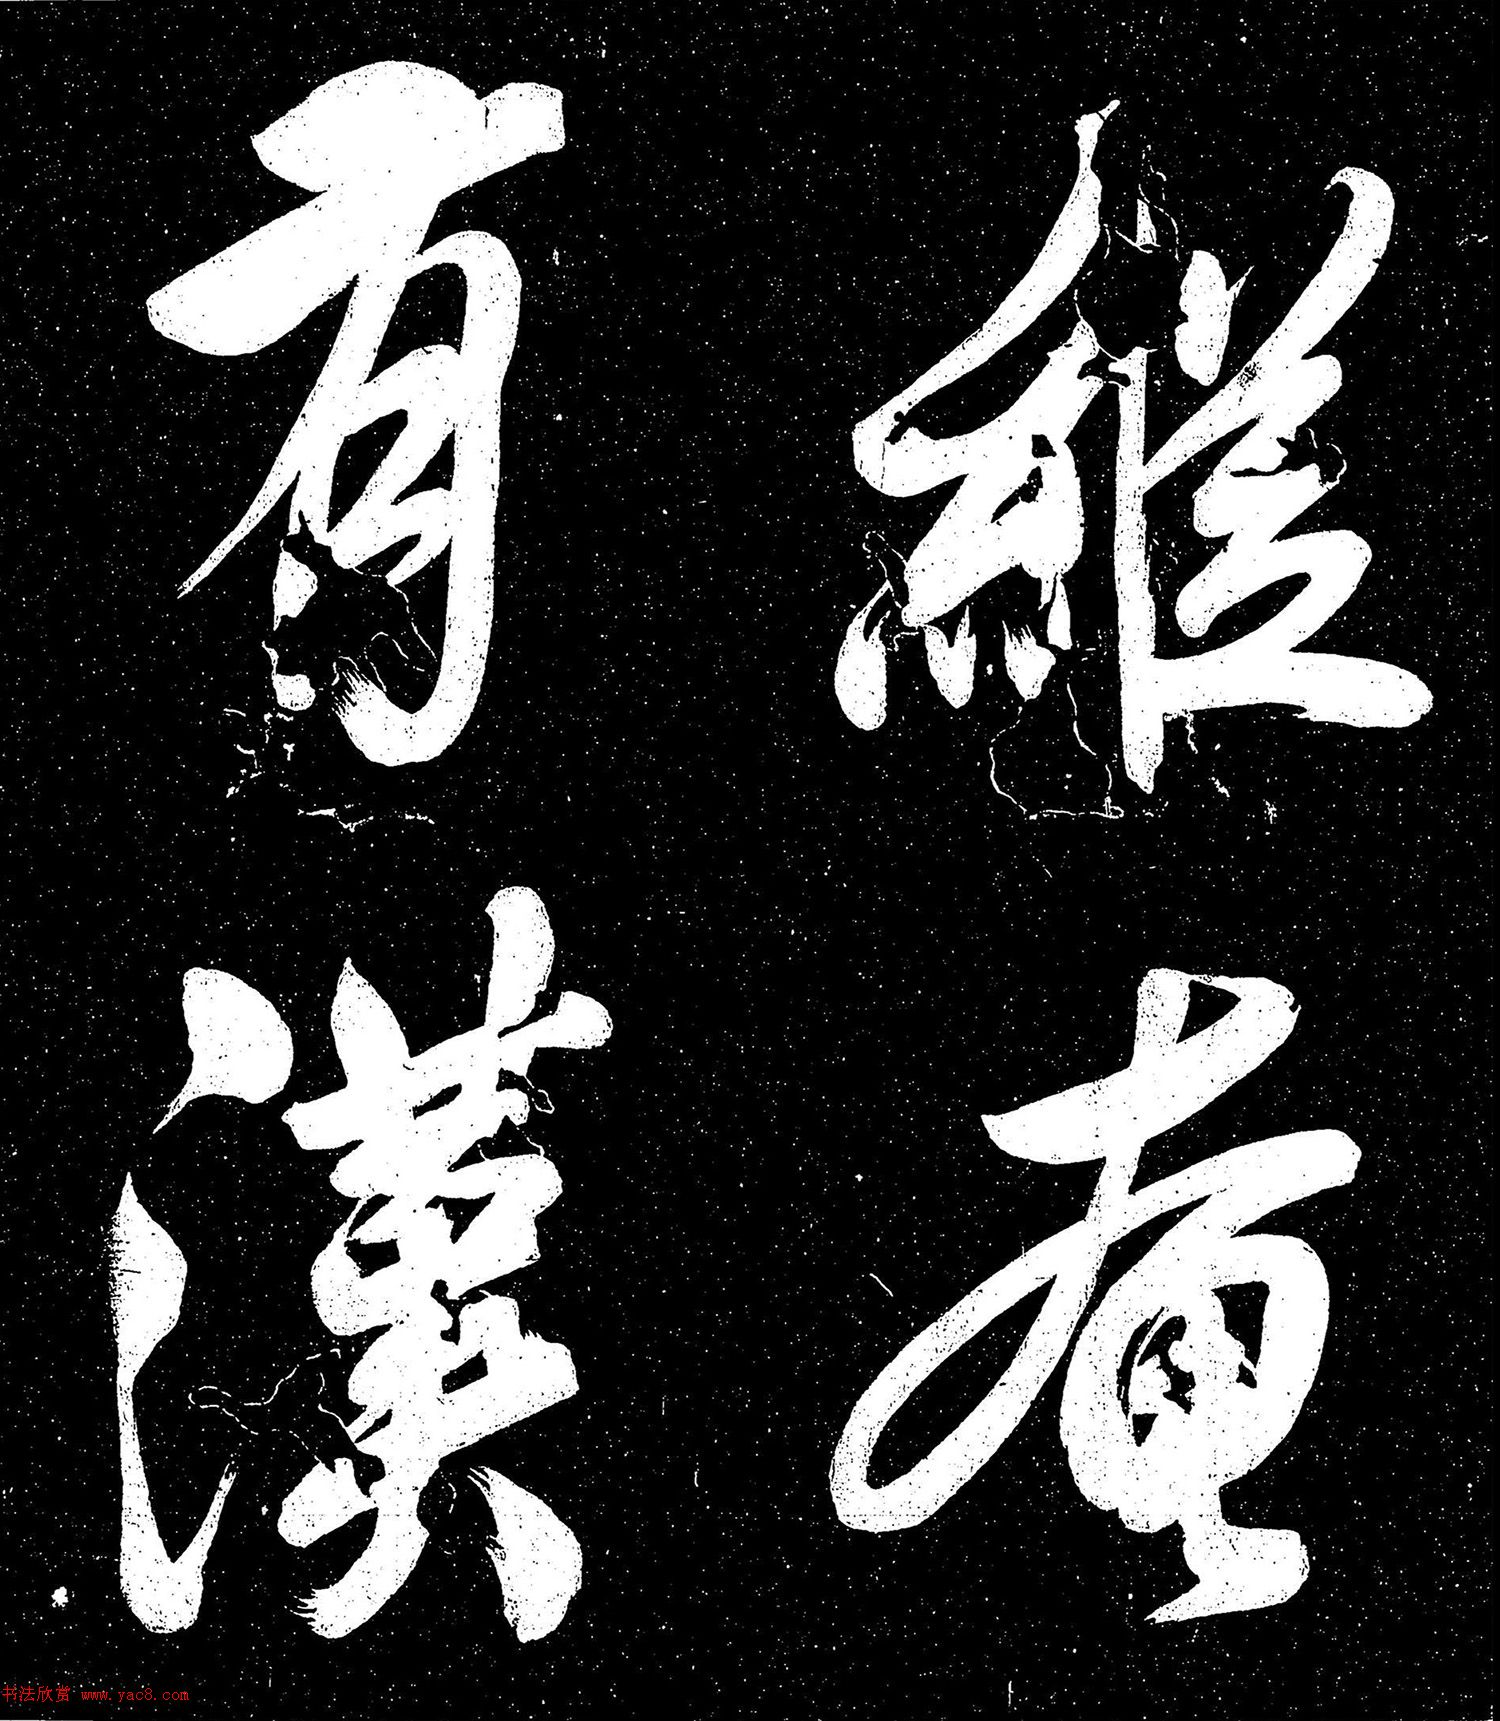 縱
有漢
书法欣赏 www.yac8.com